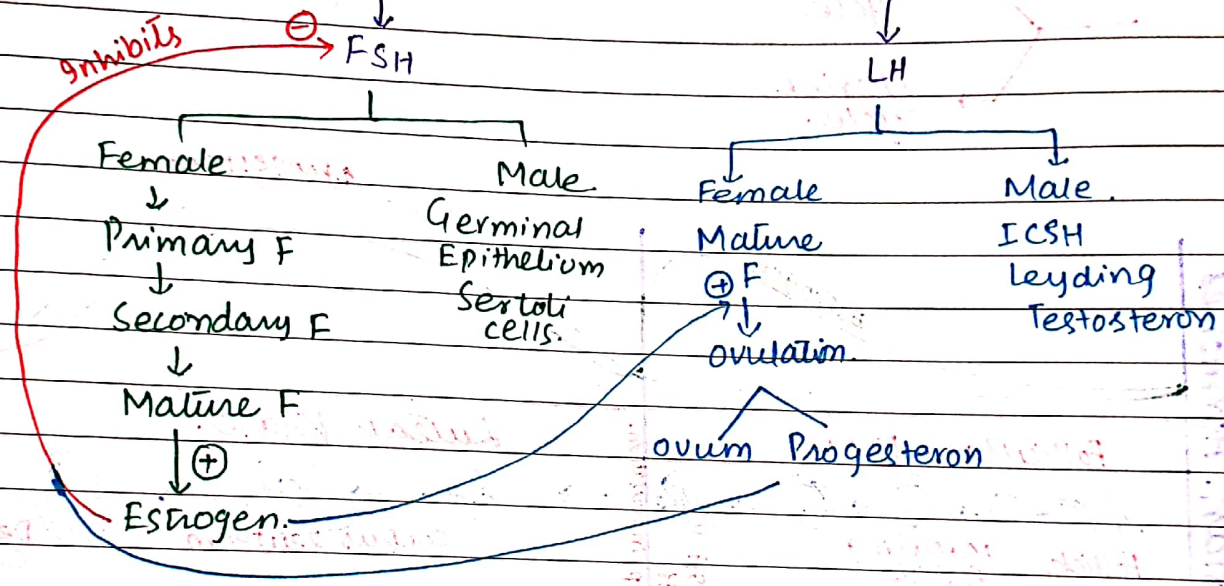 Inhibits
⊖
FSH
LH
Female
Male
Primary F
Secondary F
Mature F
⊕
Estrogen.
Germinal
Epithelium
Sertoli
cells.
Female
Male.
Mature
⊕ F
ovulation.
ovum Progesteron
ICSH
Leyding
Testosteron